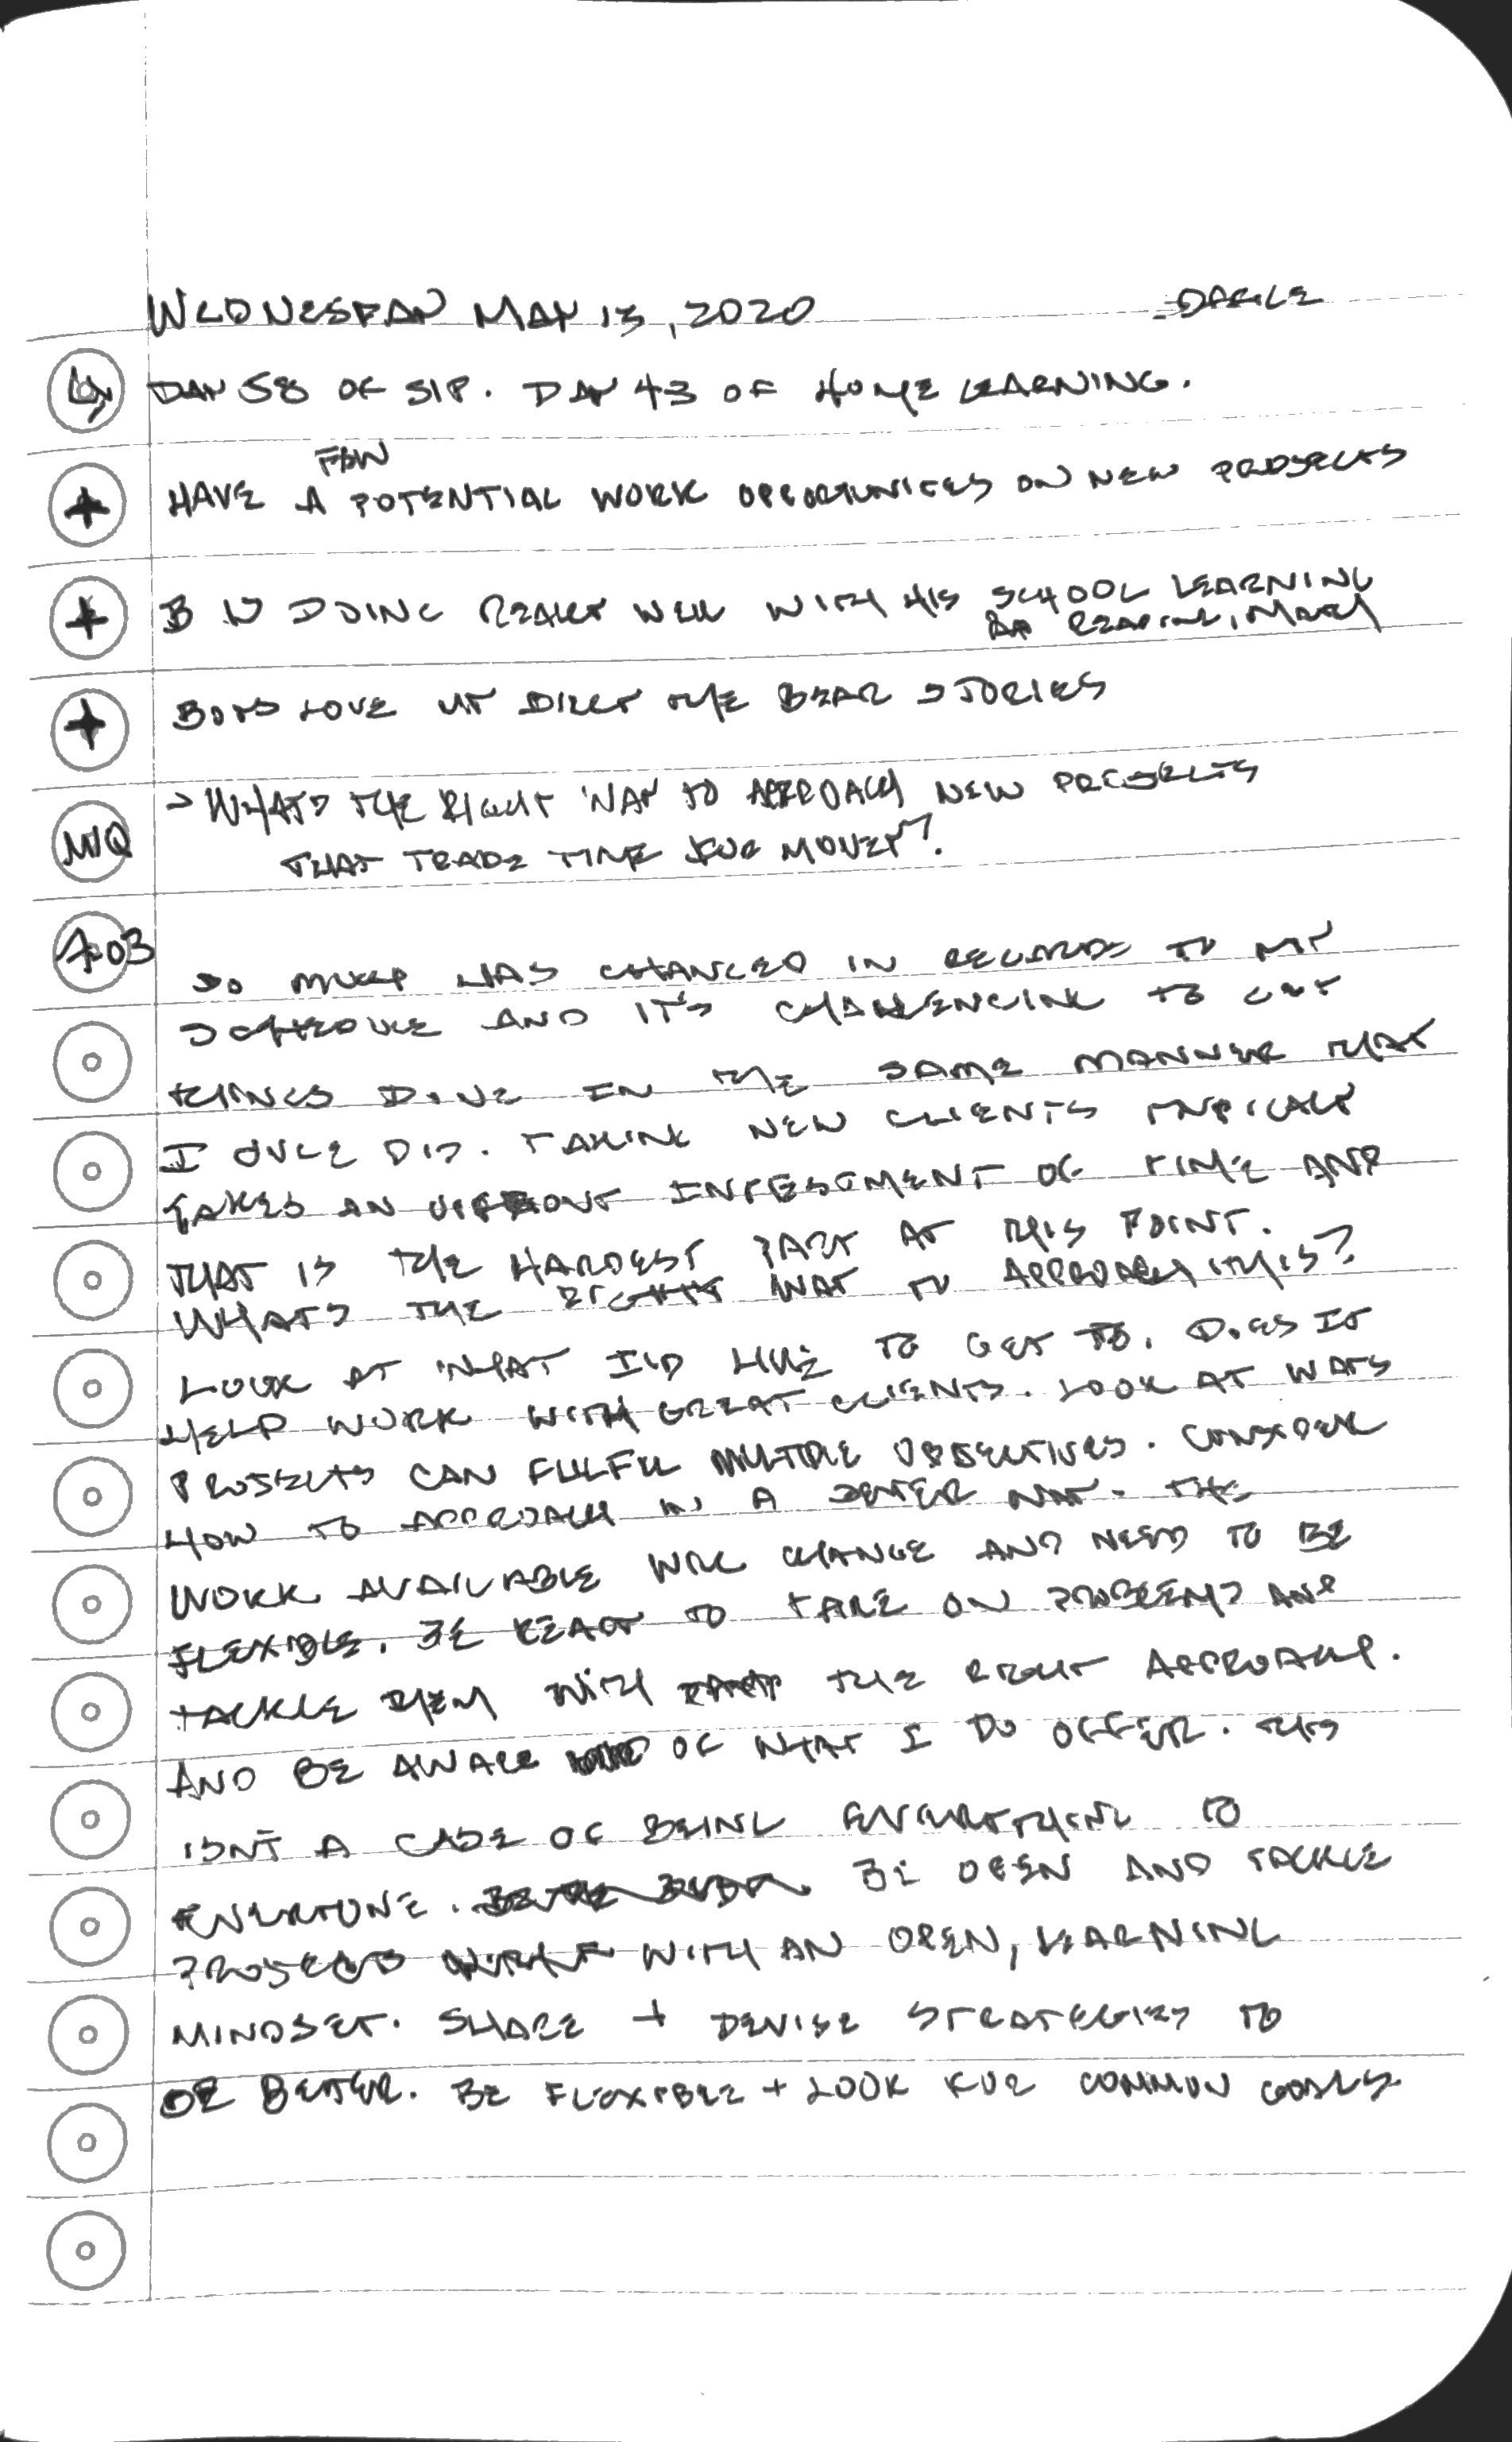 WEDNESDAY MAY 13, 2020 - OFFICE
DAY 58 OF SIP. DAY 43 OF HOME LEARNING.
FEW
+ HAVE A POTENTIAL WORK OPPORTUNITIES ON NEW PROJECTS
+ B IS DOING REALLY WELL WITH HIS SCHOOL LEARNING
READING, MATH
+ BOYS LOVE MY DILLY THE BEAR STORIES
M/Q -> WHAT'S THE RIGHT WAY TO APPROACH NEW PROJECTS
THAT TRADE TIME FOR MONEY?
7:03
SO MUCH HAS CHANGED IN REGARDS TO MY
SCHEDULE AND IT'S CHALLENGING TO GET
THINGS DONE IN THE SAME MANNER THAT
I ONCE DID. TAKING NEW CLIENTS TYPICALLY
TAKES AN UPFRONT INVESTMENT OF TIME AND
THAT IS THE HARDEST PART AT THIS POINT.
WHAT'S THE RIGHT WAY TO APPROACH THIS?
LOOK AT WHAT I'D LIKE TO GET TO. DOES IT
HELP WORK WITH GREAT CLIENTS. LOOK AT WAYS
PROJECTS CAN FULFILL MULTIPLE OBJECTIVES. CONSIDER
HOW TO APPROACH IN A BETTER WAY. THE
WORK AVAILABLE WILL CHANGE AND NEED TO BE
FLEXIBLE. BE READY TO TAKE ON PROBLEMS AND
TACKLE THEM WITH THE RIGHT APPROACH.
AND BE AWARE OF WHAT I DO OFFER. THIS
ISN'T A CASE OF BEING EVERYTHING TO
EVERYONE. BE OPEN AND TACKLE
PROJECTS WITH AN OPEN, LEARNING
MINDSET. SHARE + DEVISE STRATEGIES TO
BE BETTER. BE FLEXIBLE + LOOK FOR COMMON GOALS.